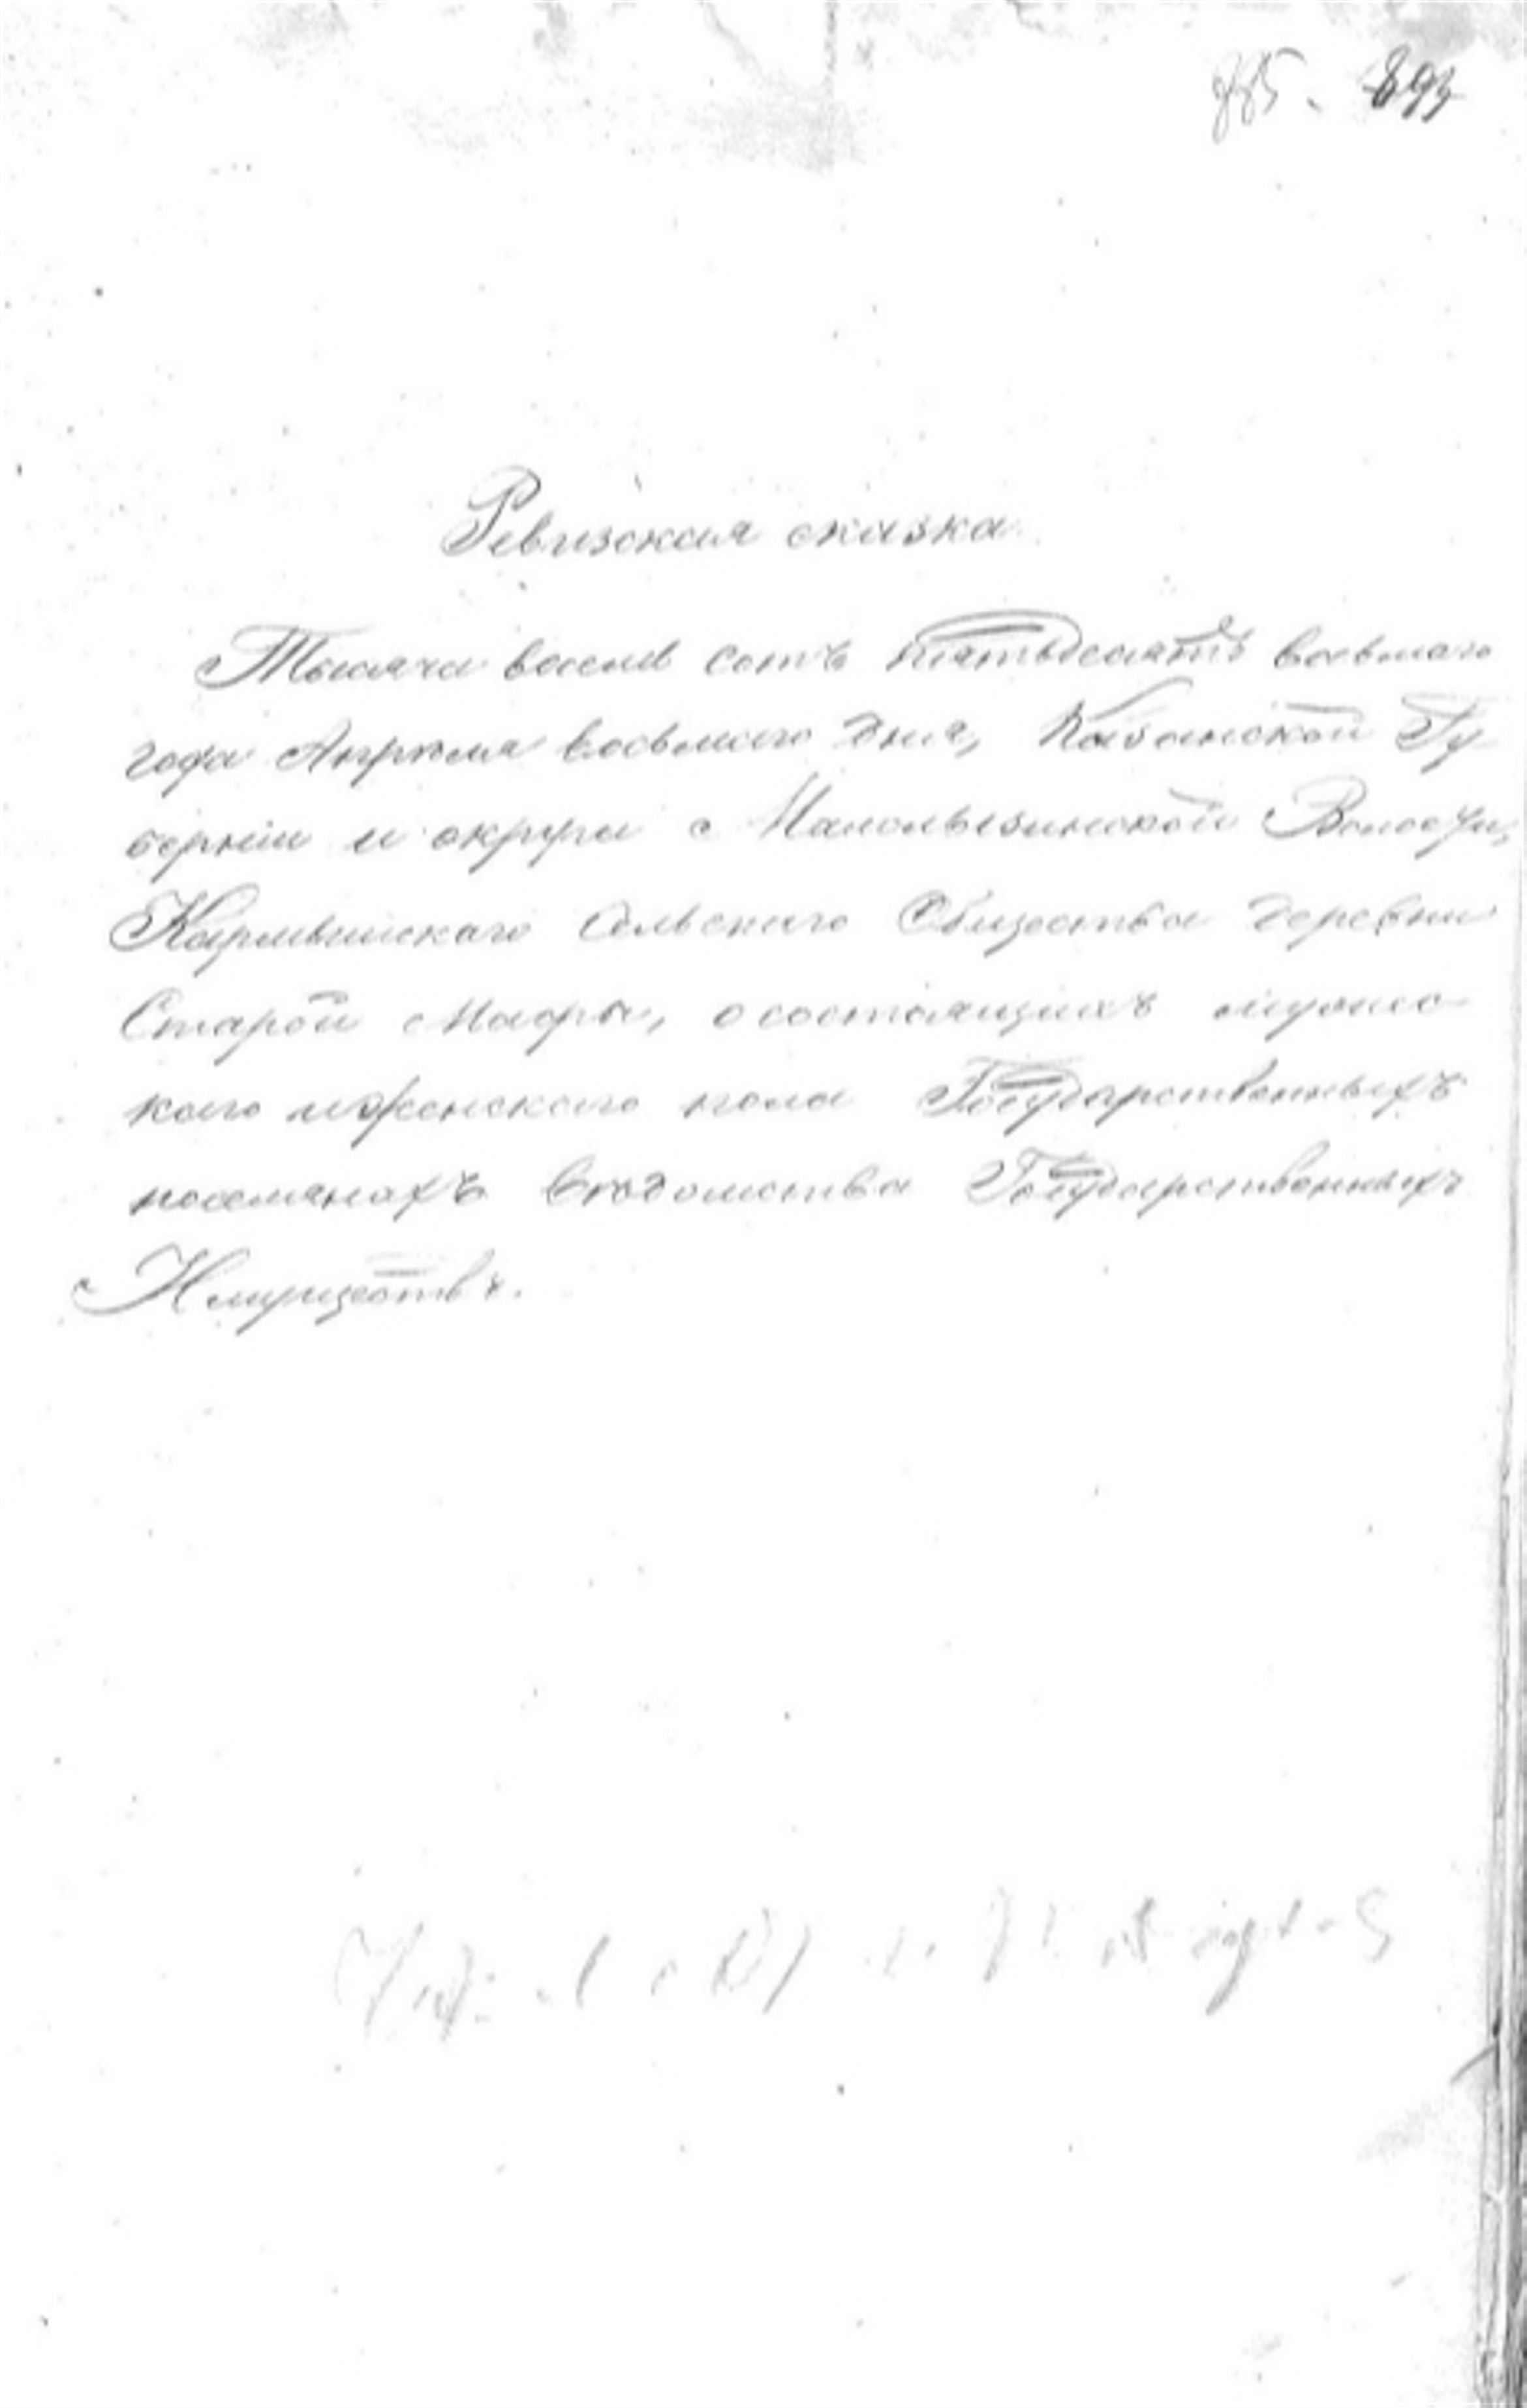 885. 893
Ревизская сказка
Тысяча восемь сотъ пятьдесятъ восьмаго
года Апрѣля восьмаго дня, Казанской Гу
берніи и округи Волости,
Сельскаго Общества деревни
Старой о состоящихъ мужес
каго и женскаго пола Государственныхъ
поселянахъ вѣдомства Государственныхъ
Имуществъ.